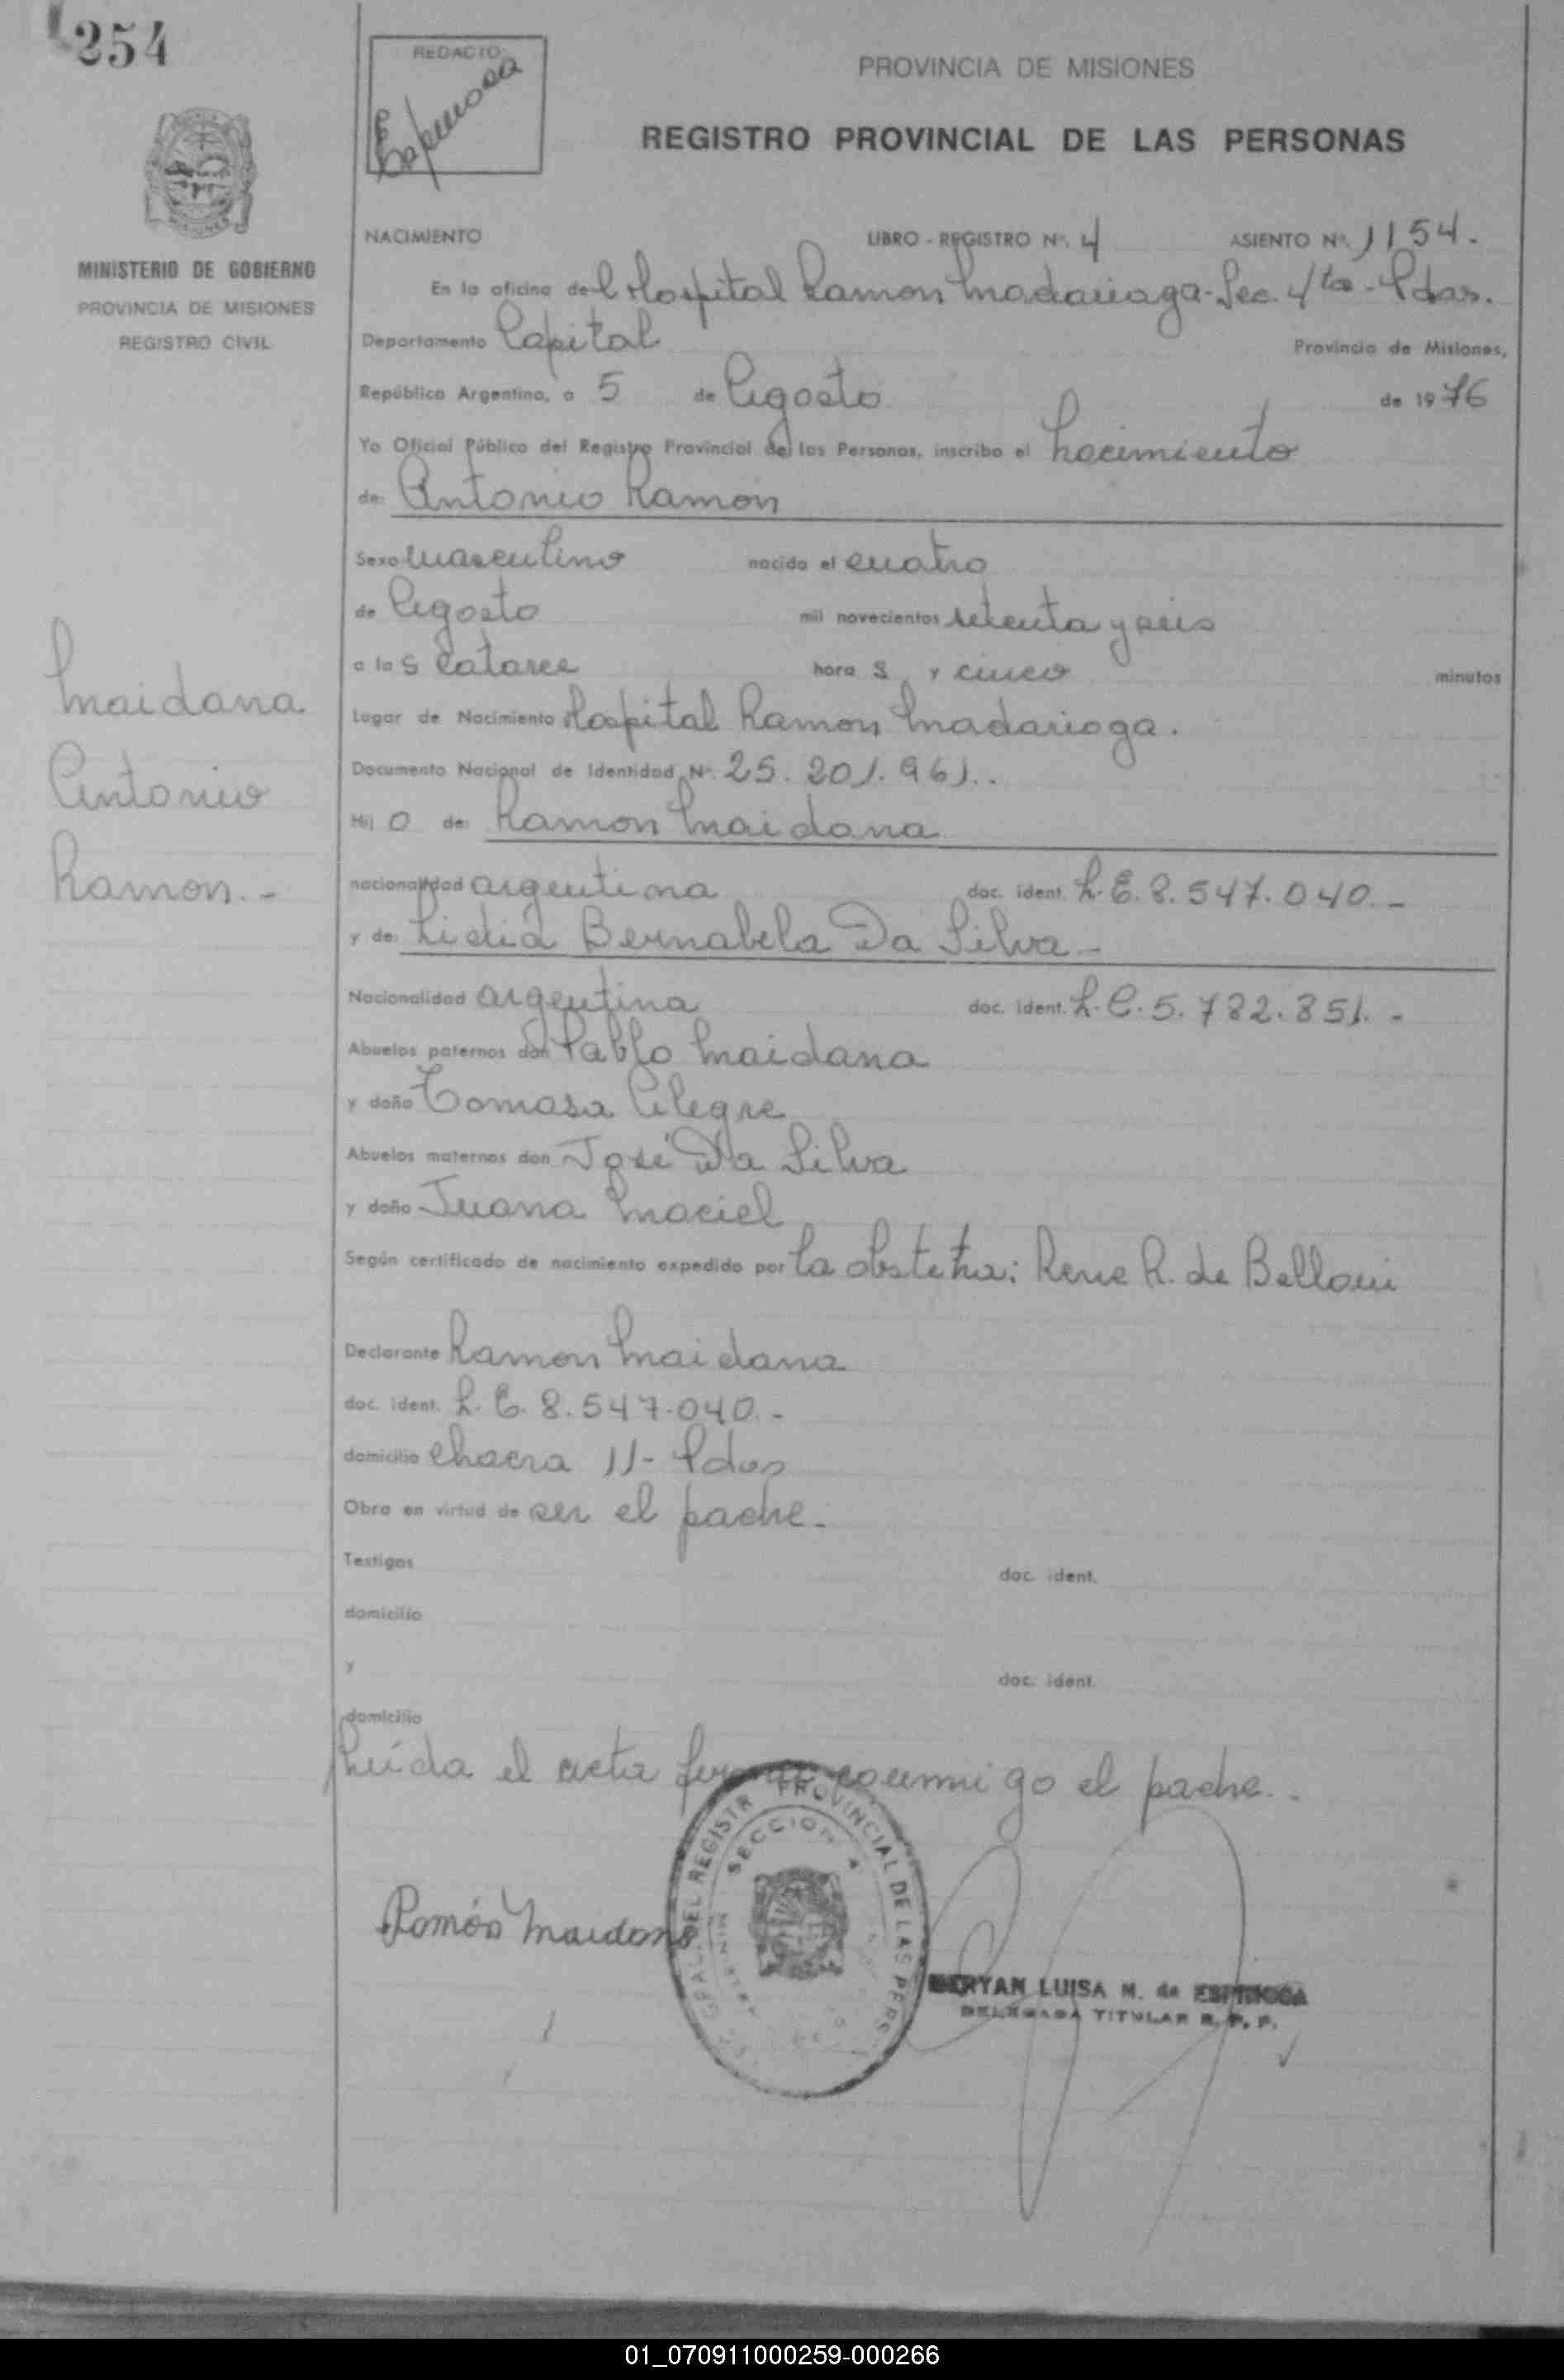 254
REDACTO:
Espinosa
PROVINCIA DE MISIONES
REGISTRO PROVINCIAL DE LAS PERSONAS
MINISTERIO DE GOBIERNO
PROVINCIA DE MISIONES
REGISTRO CIVIL
NACIMIENTO LIBRO - REGISTRO Nº. 4 ASIENTO Nº. 1154.
En la oficina del Hospital Ramon Madariaga - Sec. 4ta - Pdas.
Departamento Capital Provincia de Misiones,
República Argentina, a 5 de Agosto de 1976
Yo Oficial Público del Registro Provincial de las Personas, inscribo el Nacimiento
de: Antonio Ramon
Sexo Masculino nacido el cuatro
de Agosto mil novecientos setenta y seis
a las catorce hora s y cinco minutos
Lugar de Nacimiento Hospital Ramon Madariaga.
Documento Nacional de Identidad Nº. 25.201.961..
Hij o de: Ramon Maidana
nacionalidad argentina doc. ident. L.E. 8.547.040.-
y de: Lidia Bernabela Da Silva -
Nacionalidad argentina doc. ident. L.C. 5.782.851.-
Abuelos paternos don Pablo Maidana
y doña Tomasa Alegre
Abuelos maternos don José Da Silva
y doña Juana Maciel
Según certificado de nacimiento expedido por la obstetra: Rene R. de Belloni
Declarante Ramon Maidana
doc. ident. L.E. 8.547.040.-
domicilio chacra 11- Pdas
Obra en virtud de ser el padre.
Testigos doc. ident.
domicilio
y doc. ident.
domicilio
Leída el acta firma conmigo el padre..
Maidana
Antonio
Ramon.-
Ramón Maidana
GRAL. DEL REGISTR PROVINCIAL DE LAS PERS
SECCION 4
LUISA M. de ESPINOSA
DELEGADA TITULAR R. P. P.
01_070911000259-000266